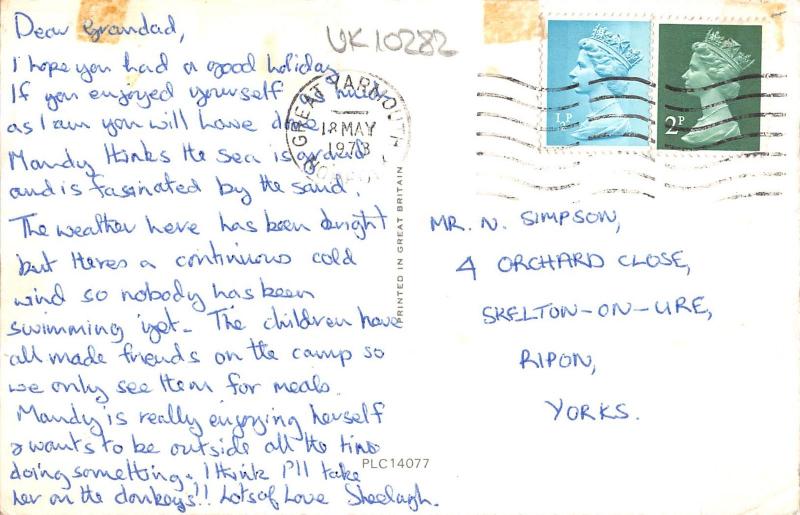 Dear Grandad,
I hope you had a good holiday.
If you enjoyed yourself as much
as I am you will have done
Mandy thinks the sea is grand
and is fasinated by the sand.
The weather here has been bright
but theres a continuous cold
wind so nobody has been
swimming yet - The children have
all made friends on the camp so
we only see them for meals.
Mandy is really enjoying herself
& wants to be outside all the time
doing something. I think I'll take
her on the donkeys!! Lots of Love Sheelagh.
UK10282
GREAT YARMOUTH
18 MAY
1973
½P
2P
PRINTED IN GREAT BRITAIN
PLC14077
MR. N. SIMPSON,
4 ORCHARD CLOSE,
SKELTON-ON-URE,
RIPON,
YORKS.